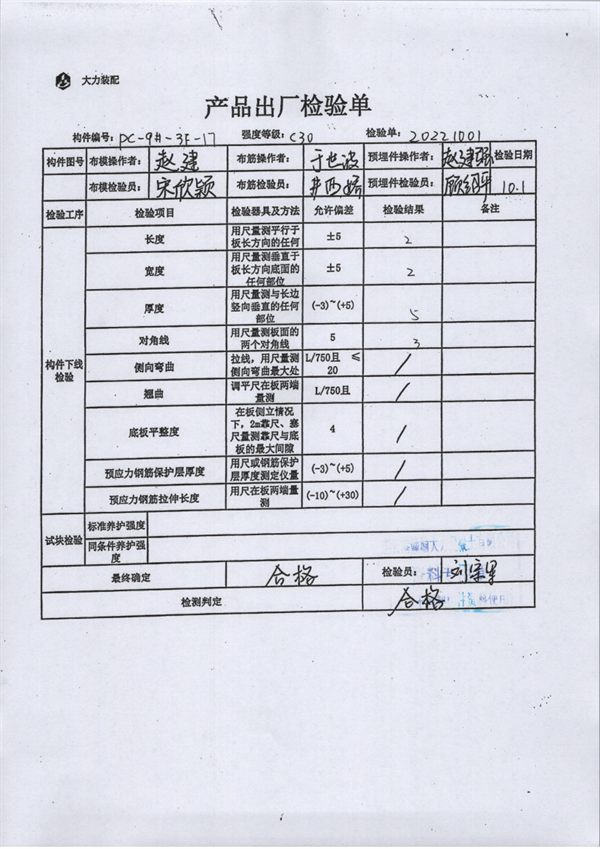 大力装配
产品出厂检验单
构件编号: PC-9#-3F-17 强度等级: C30 检验单: 20221001
构件图号 布模操作者: 赵建 布筋操作者: 于世波 预埋件操作者: 赵建强 检验日期
布模检验员: 宋欣颖 布筋检验员: 预埋件检验员: 10.1
检验工序 检验项目 检验器具及方法 允许偏差 检验结果 备注
构件下线检验
长度 用尺量测平行于板长方向的任何 ±5 2
宽度 用尺量测垂直于板长方向底面的任何部位 ±5 2
厚度 用尺量测与长边竖向垂直的任何部位 (-3)~(+5) 5
对角线 用尺量测板面的两个对角线 5 3
侧向弯曲 拉线，用尺量测侧向弯曲最大处 L/750且 ≤20 /
翘曲 调平尺在板两端量测 L/750且 /
底板平整度 在板侧立情况下，2m靠尺、塞尺量测靠尺与底板的最大间隙 4 /
预应力钢筋保护层厚度 用尺或钢筋保护层厚度测定仪量 (-3)~(+5) /
预应力钢筋拉伸长度 用尺在板两端量测 (-10)~(+30) /
试块检验 标准养护强度
同条件养护强度
最终确定 合格 检验员:
检测判定 合格